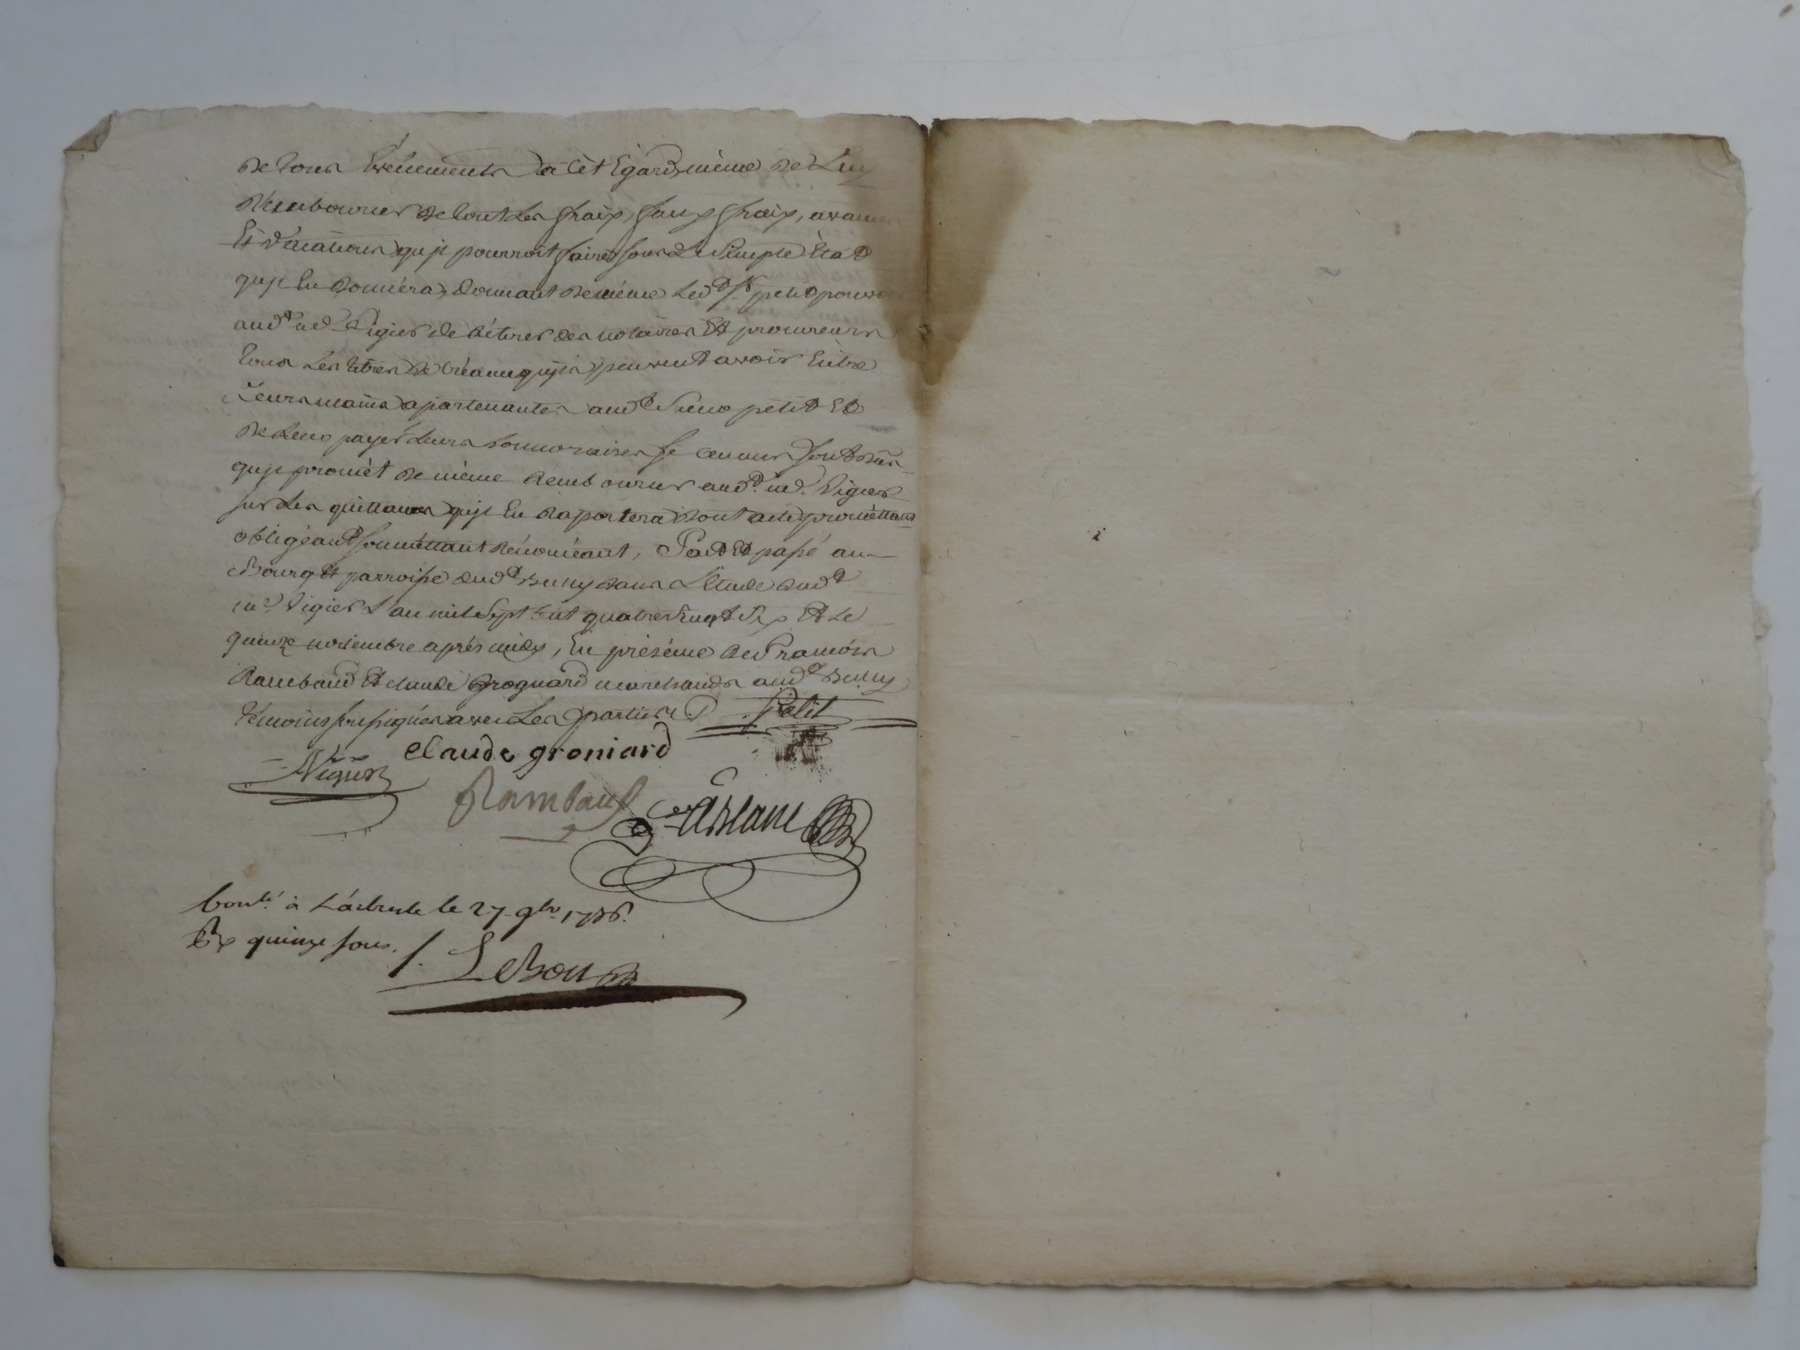 de tous Evénements a cèt Egard, même de Luy
Rembourser de tout Les fraix, faux fraix, avances
Et vacations qu'jl pourroit faire sous Le Simple état
qu'jl En donnéra, donnant de même Led. Sr. petit pouvoir
aud. me. Vigier de Rétirer des notaires Et procureurs
tous Les titres de créance qu'jls peuvent avoir Entre
Leurs mains apartenantes aud. Sieur petit Et
de Leur payér Leurs honnoraires
qu'jl promèt de même Rembourser aud. me. Vigier
sur Les quittances qu'jl En Raportera dont acte, prométtant
obligéant, soumèttant Rénoncéant, fait Et passé au
Bourg Et parroisse dud. Bussy dans L'Etude dud.
me. Vigier L'an mil Sept Cent quatre Vingt Six Et Le
quinze novembre aprés midy, En présénce de francois
Rambaud Et claude Grognard marchands aud. Bussy
témoins soussignés avec Les parties. Petit
claude groniard
Vigier
Rambaud
lont.é à le 27 9bre 1786.
Rx quinze sous. /. LeBon